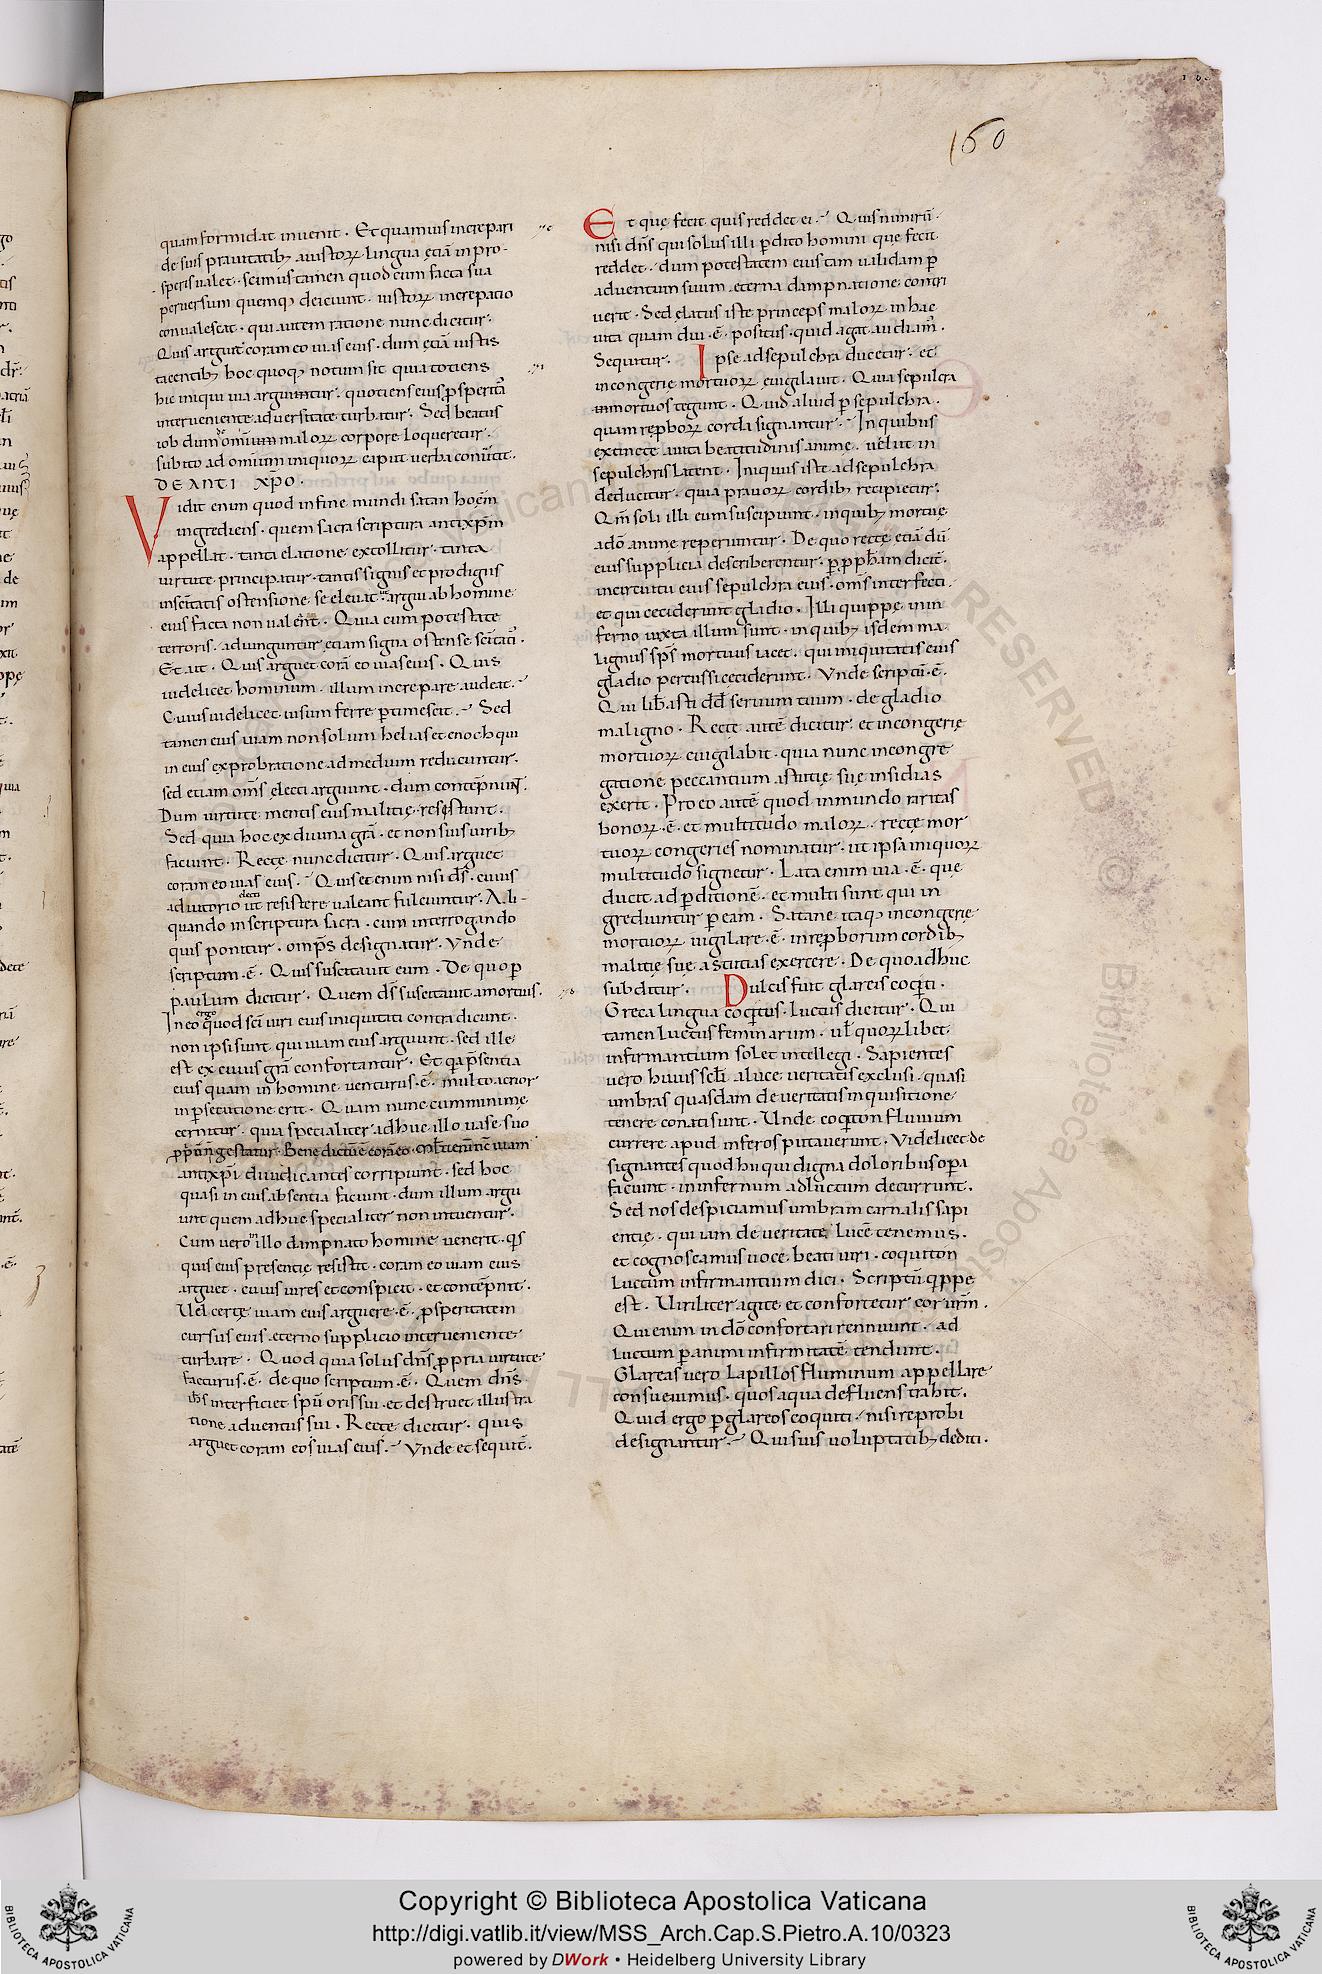 160
quam formidat invenit. Et quamuis increpari
de suis prauitatib; a iustorꝝ lingua ętiā in pro-
speris ualet. scimus tamen quod cum facta sua
peruersum quemq; deiciunt. iustorꝝ increpatio
conualescat. qui autem ratione nunc dicitur.
Quis arguet coram eo uias eius. dum ętiā iustis
tacentib; hoc quoq; notum sit quia totiens
hic iniqui uia arguuntur. quotiens eius ꝓsperitā
interueniente aduersitate turbatur. Sed beatus
iob dum omnium malorꝝ corpore loqueretur.
subito ad omnium iniquorꝝ caput uerba conūtit.
DE ANTI XP̄O.
Vidit enim quod in fine mundi satan hoēm
ingrediens. quem sacra scriptura antixp̄m
appellat. tanta elatione extollitur. tanta
uirtute principatur. tantis signis et prodigiis
in sc̄itatis ostensione se eleuat. ut argui ab homine
eius facta non ualent. Quia cum potestate
terroris. adiunguntur etiam signa ostense sc̄itati.
Et ait. Quis arguet corā eo uias eius. Quis
uidelicet hominum. illum increpare audeat.
Cuius uidelicet uisum ferre ꝑtimescit. Sed
tamen eius uiam non solum helias et enoch qui
in eius exprobratione ad medium reducuntur.
sed etiam om̄s electi arguunt. dum contēpnunt.
Dum uirtute mentis eius malitię resistunt.
Sed quia hoc ex diuina grā. et non suis uirib;
faciunt. Rectę nunc dicitur. Quis arguet
coram eo uias eius. Quis etenim nisi ds̄. cuius
adiutorio electi ut resistere ualeant fulciuntur. Ali-
quando in scriptura sacra. cum interrogando
quis ponitur. omp̄s designatur. Vnde
scriptum.ē. Quis suscitauit eum. De quo ꝑ
paulum dicitur. Quem ds̄ suscitauit a mortuis.
In eo ergo quod sc̄i uiri eius iniquitati contradicunt.
non ipsi sunt qui uiam eius arguunt. sed ille
est ex cuius grā confortantur. Et qa p̄sentia
eius quam in homine uenturus.ē. multo acrior
in ꝑsecutione erit. Quam nunc cum minime
cernitur. quia specialiter adhuc illo uase suo
antixp̄i. diiudicantes corripiunt. sed hoc
quasi in eius absentia faciunt. dum illum argu
unt quem adhuc specialiter non intuentur.
Cum uero in illo dampnato homine uenerit. qs̄
quis eius presentię resistit. coram eo uiam eius
arguet. cuius uires et conspicit. et contēpnit.
Vel certę uiam eius arguere.ē. ꝓsperitatem
cursus eius. eterno supplicio interueniente
turbare. Quod quia solus dn̄s propria uirtute
facturus.ē. de quo scriptum.ē. Quem dn̄s
ih̄s interficiet spū oris sui. et destruet illustra
tione aduentus sui. Recte dicitur. quis
arguet coram eo uias eius. Vnde et sequit̄.
Et quę fecit quis reddet ei. Quis nimirū
nisi dn̄s qui solus illi ꝑdito homini quę fecit
reddet. dum potestatem eius tam ualidam ꝑ
aduentum suum. ęterna dampnatione contri
uerit. Sed elatus iste princeps malorꝝ in hac
uita quam diu.ē. positus. quid agat audiam̄.
Sequitur. Ipse ad sepulchra ducetur. et
in congerie mortuorꝝ euigilauit. Quia sepulcra
mortuos tegunt. Quid aliud ꝑ sepulchra.
quam rep̄borꝝ corda signantur. In quibus
extincte a uita beatitudinis anime. uelut in
sepulchris latent. Iniquus iste ad sepulchra
deducitur. quia prauorꝝ cordib; recipietur.
Qm̄ soli illi eum suscipiunt. in quib; mortue
a dō anime reperiuntur. De quo rectę etiā dū
eius supplicia describerentur. ꝑ ꝓph̄am dicit̄.
in circuitu eius sepulchra eius. om̄s interfecti.
et qui ceciderunt gladio. Illi quippe in in
ferno iuxta illum sunt. in quib; isdem ma
lignus sp̄s mortuus iacet. qui iniquitatis eius
gladio percussi ceciderunt. Vnde scriptū.ē.
Qui lib̄asti dd̄ seruum tuum. de gladio
maligno. Rectę autē dicitur. et in congerię
mortuorꝝ euigilabit. quia nunc in congre
gatione peccantium astutię suę insidias
exerit. Pro eo autē quod in mundo raritas
bonorꝝ.ē. et multitudo malorꝝ. rectę mor
tuorꝝ congeries nominatur. ut ipsa iniquorꝝ
multitudo signetur. Lata enim uia.ē. quę
ducit ad ꝑditionē. et multi sunt qui in
grediuntur ꝑ eam. Satanę itaq; in congerię
mortuorꝝ uigilare.ē. in rep̄borum cordib;
malitię suę astutias exercere. De quo adhuc
subditur. Dulcis fuit glareis cocyti.
Greca lingua cocytus. luctus dicitur. Qui
tamen luctus feminarum. ul̄ quorꝝlibet
infirmantium solet intellegi. Sapientes
uero huius scl̄i. a luce ueritatis exclusi. quasi
umbras quasdam de ueritatis inquisitione
tenere conati sunt. Unde cocyton fluuium
currere apud inferos putauerunt. Videlicet de
signantes quod hii qui digna doloribus oꝑa
faciunt. in infernum ad luctum decurrunt.
Sed nos despiciamus umbram carnalis sapi
entię. qui iam de ueritate lucē tenemus.
et cognoscamus uoce beati uiri. coquiton
luctum infirmantium dici. Scriptū qippe
est. Uiriliter agite et confortetur cor ur̄m.
Qui enim in dō confortari rennuunt. ad
luctum ꝑ animi infirmitatē tendunt.
Glareas uero lapillos fluminum appellare
consueuimus. quos aqua defluens trahit.
Quid ergo ꝑ glareos coquiti. nisi reprobi
designantur. Qui suis uoluptatib; dediti.
Copyright © Biblioteca Apostolica Vaticana
http://digi.vatlib.it/view/MSS_Arch.Cap.S.Pietro.A.10/0323
powered by DWork • Heidelberg University Library